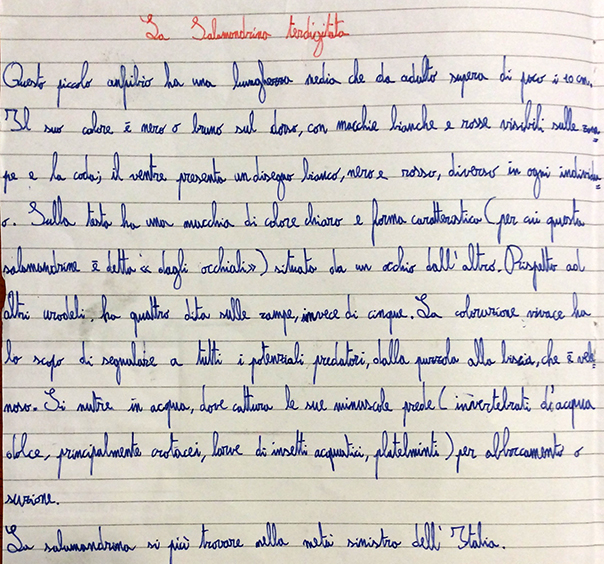 La Salamandrina terdigitata
Questo piccolo anfibio ha una lunghezza media che da adulto supera di poco i 10 cm.
Il suo colore è nero o bruno sul dorso, con macchie bianche e rosse visibili sulle zam
pe e la coda; il ventre presenta un disegno bianco, nero e rosso, diverso in ogni individu-
o. Sulla testa ha una macchia di colore chiaro e forma caratteristica (per cui questa
salamandrine è detta "dagli occhiali») situata da un occhio dall'altro. Rispetto ad
altri urodeli, ha quattro dita sulle zampe, invece di cinque. La colorazione vivace ha
lo scopo di segnalare a tutti i potenziali predatori, dalla puzzola alla biscia, che è vele
noso. Si nutre in acqua, dove cattura le sue minuscole prede (invertebrati di acqua
dolce, principalmente crotacei, larve di insetti acquatici, platelminti) per abboccamento o
suzione.
La salamandrina si più trovare nella metà sinistro dell'Italia.